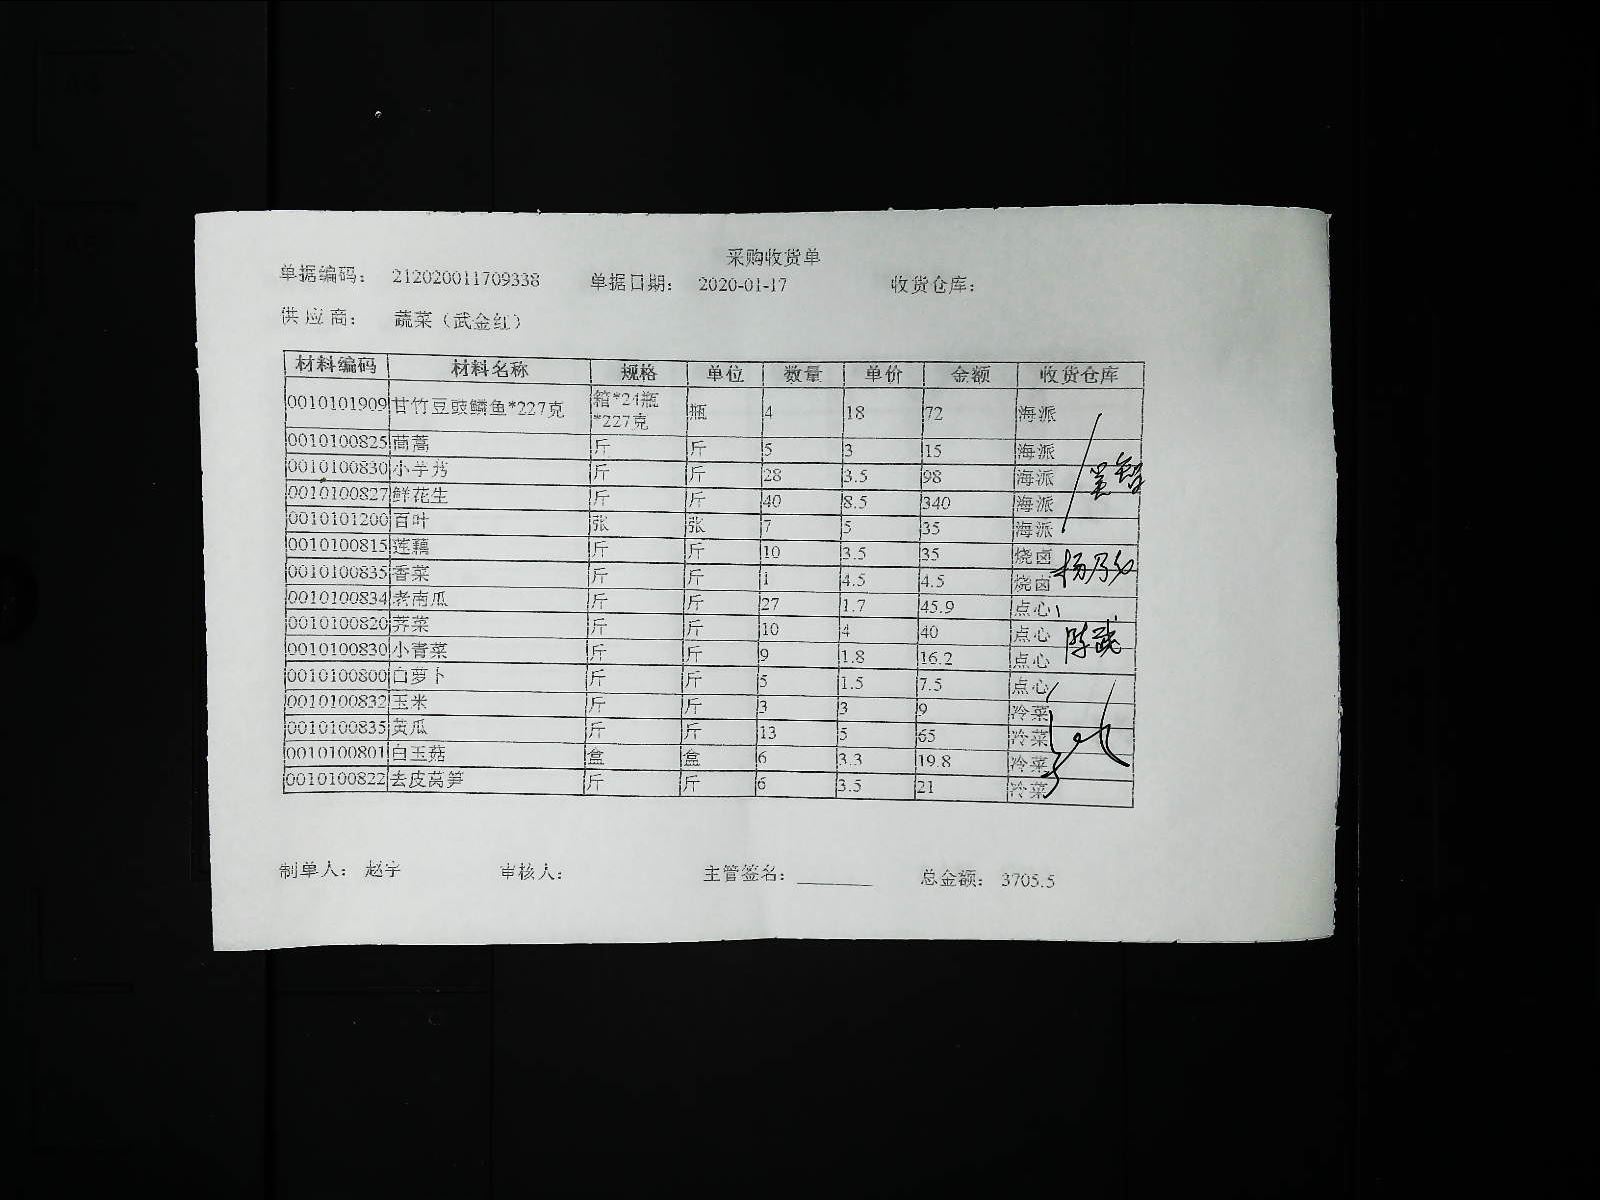 采购收货单
单据编码： 212020011709338 单据日期： 2020-01-17 收货仓库：
供应商： 蔬菜（武金红）
材料编码 材料名称 规格 单位 数量 单价 金额 收货仓库
0010101909 甘竹豆豉鳞鱼*227克 箱*24瓶*227克 瓶 4 18 72 海派
0010100825 茼蒿 斤 斤 5 3 15 海派
0010100830 小芋艿 斤 斤 28 3.5 98 海派
0010100827 鲜花生 斤 斤 40 8.5 340 海派
0010101200 百叶 张 张 7 5 35 海派
0010100815 莲藕 斤 斤 10 3.5 35 烧卤
0010100835 香菜 斤 斤 1 4.5 4.5 烧卤
0010100834 老南瓜 斤 斤 27 1.7 45.9 点心
0010100820 荠菜 斤 斤 10 4 40 点心
0010100830 小青菜 斤 斤 9 1.8 16.2 点心
0010100800 白萝卜 斤 斤 5 1.5 7.5 点心
0010100832 玉米 斤 斤 3 3 9 冷菜
0010100835 黄瓜 斤 斤 13 5 65 冷菜
0010100801 白玉菇 盒 盒 6 3.3 19.8 冷菜
0010100822 去皮莴笋 斤 斤 6 3.5 21 冷菜
制单人： 赵宇 审核人： 主管签名：________ 总金额： 3705.5